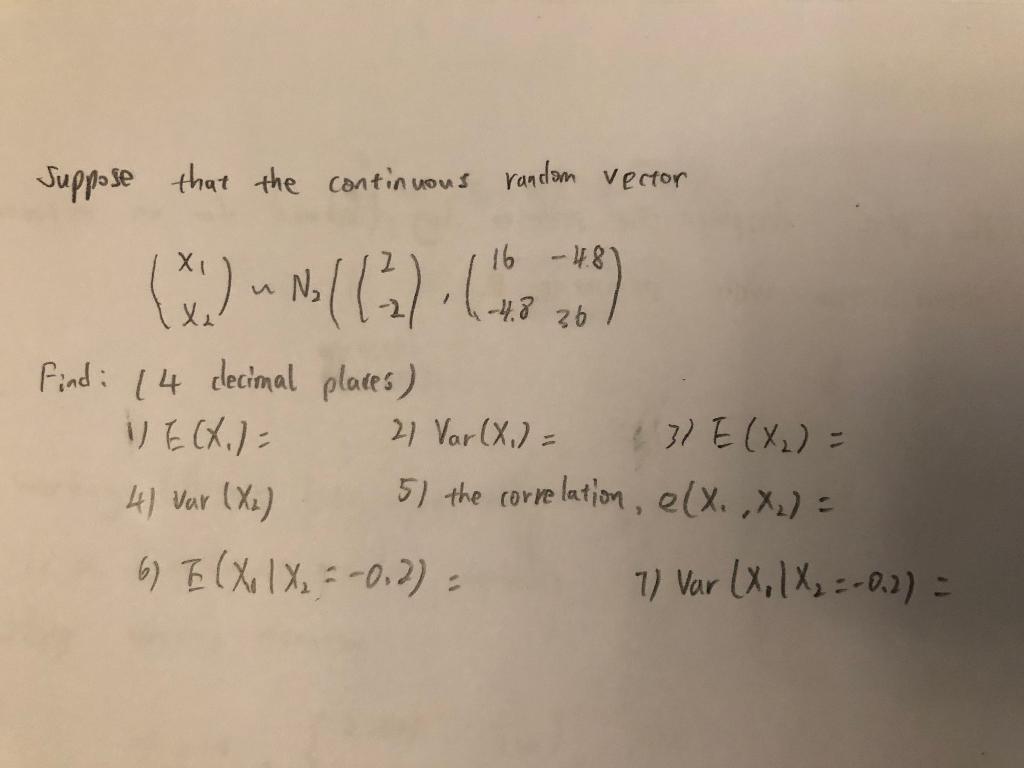 Suppose that the continuous random vector
(X₁ X₂) ~ N₂((2 -2), (16 -4.8 -4.8 36)
Find: (4 decimal places)
1) E(X₁) = 2) Var(X₁) = 3) E(X₂) =
4) Var (X₂) 5) the correlation, e(X₁, X₂) =
6) E(X₁|X₂ = -0.2) = 7) Var (X₁|X₂ = -0.2) =